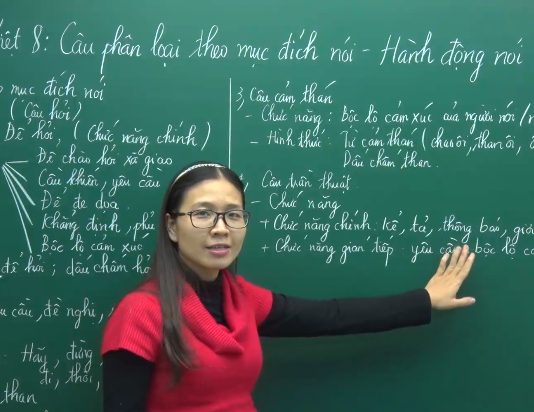 iết 8: Câu phân loại theo mục đích nói - Hành động nói
mục đích nói
(Câu hỏi)
Để hỏi (Chức năng chính)
Để chào hỏi xã giao
Cầu khiến, yêu cầu
Đe dọa
Khẳng định, phủ
Bộc lộ cảm xúc
để hỏi; dấu chấm hỏ
u cầu, đề nghị,
Hãy, đừng
đi, thôi,
than
3, Câu cảm thán
- Chức năng: Bộc lộ cảm xúc của người nói/n
- Hình thức: Từ cảm thán (chao ôi, than ôi,
Dấu chấm than.
Câu trần thuật
- Chức năng
+ Chức năng chính: kể, tả, thông báo, giớ
+ Chức năng gián tiếp: yêu cầ bộc lộ cả